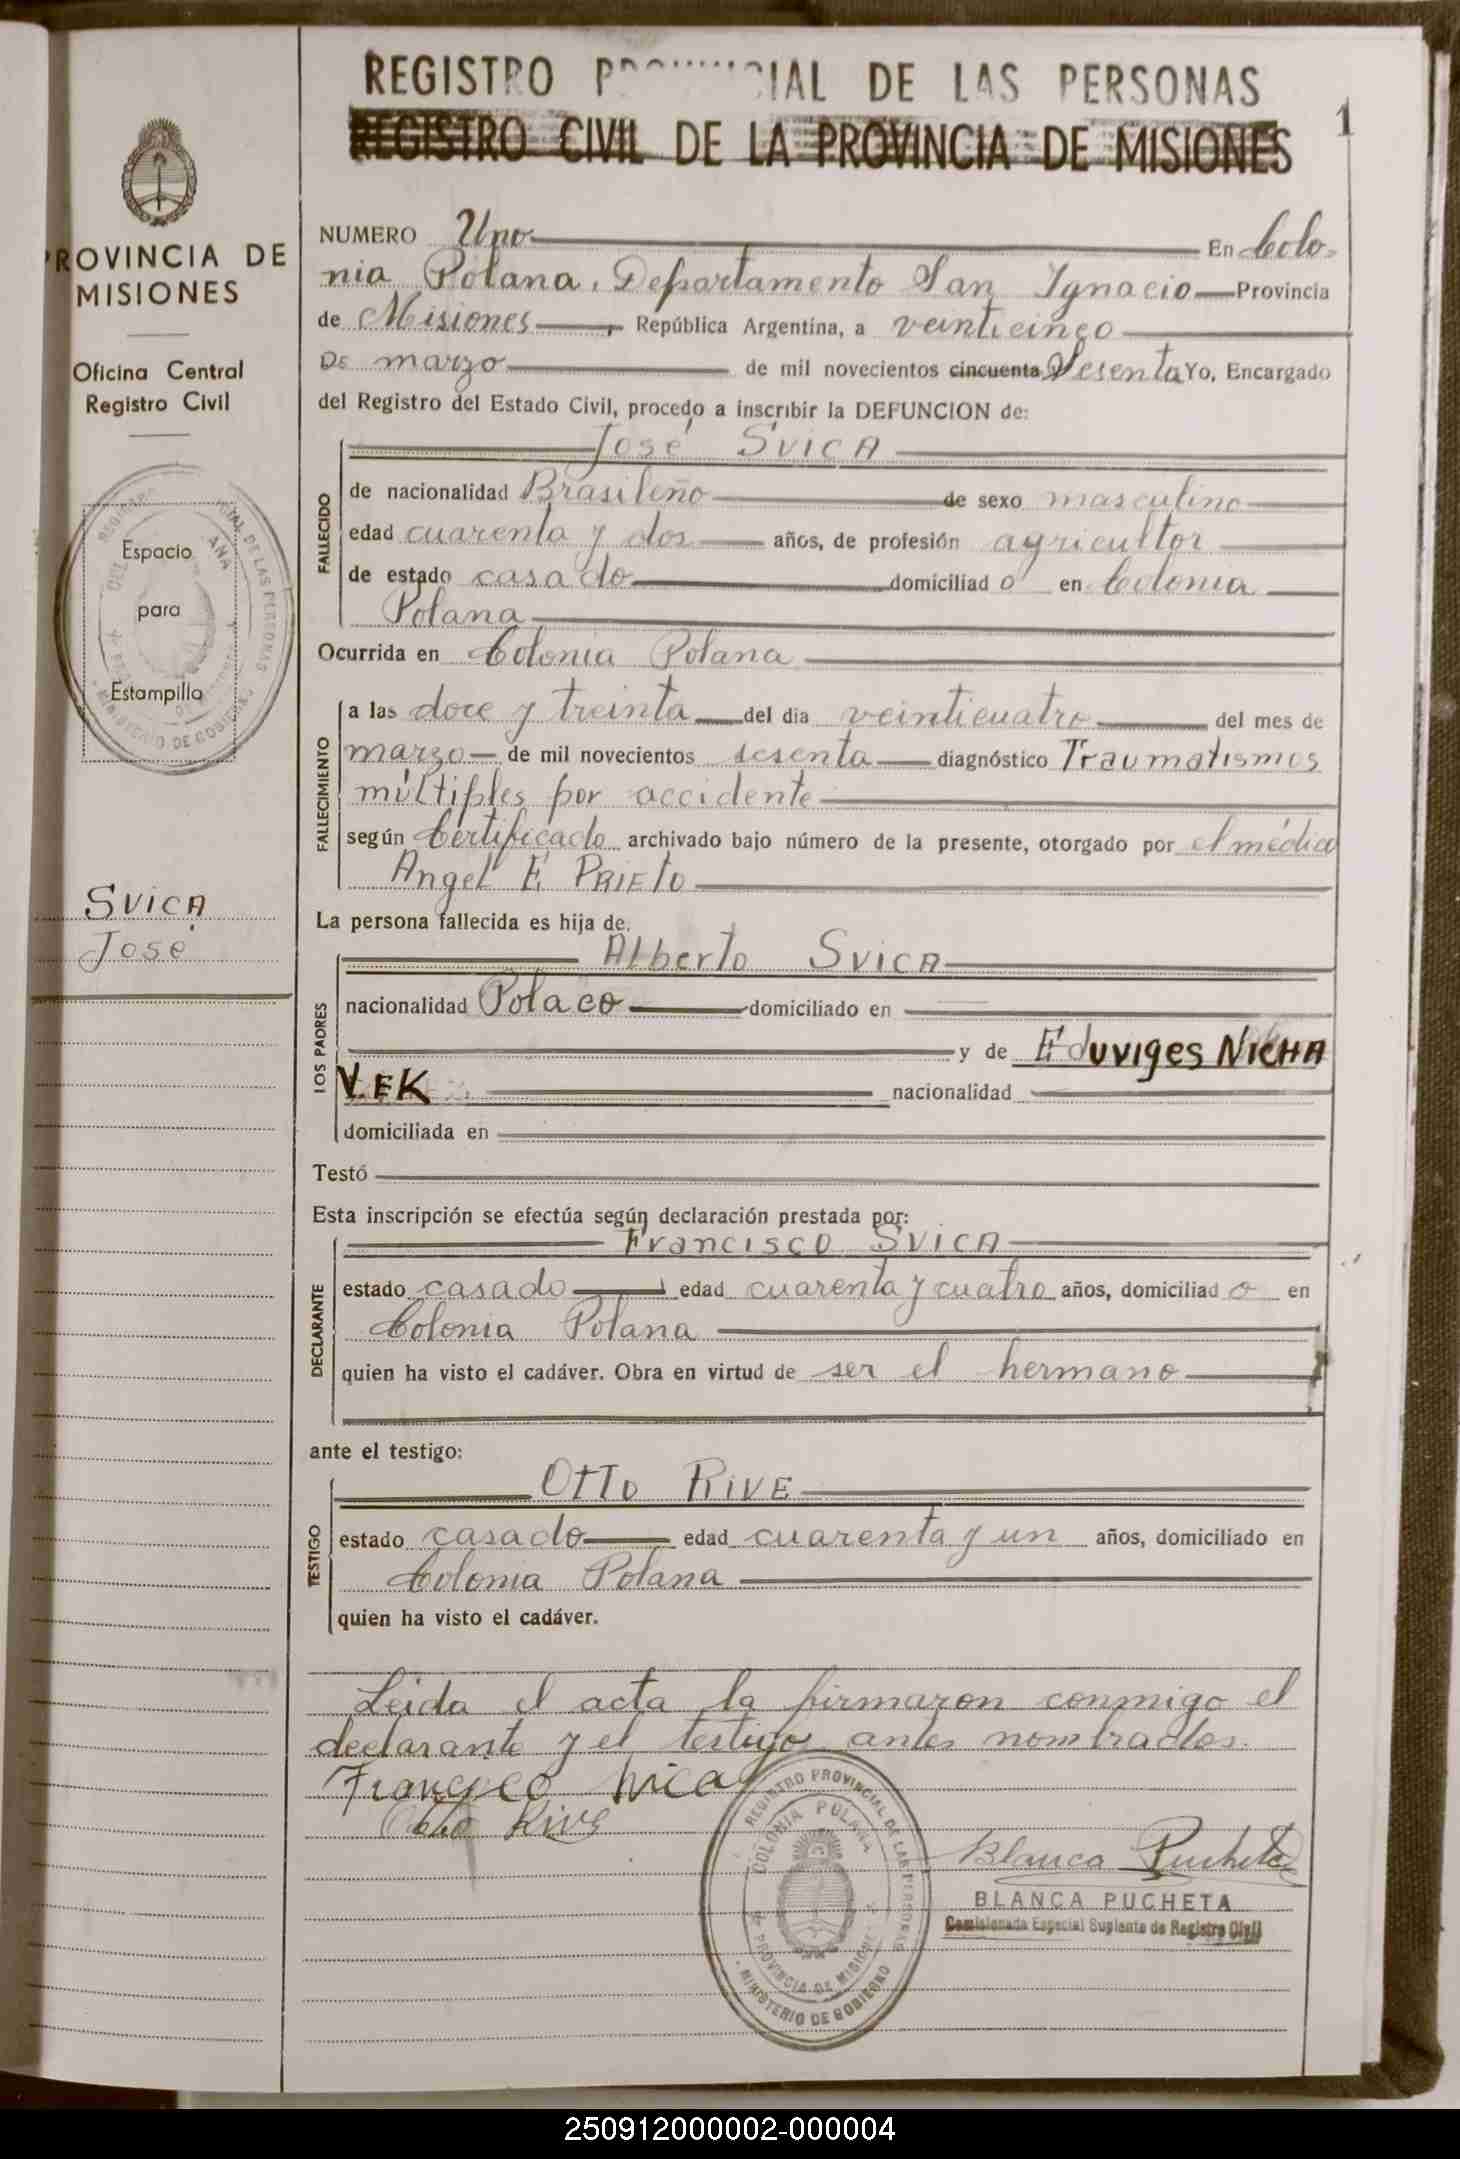 REGISTRO PROVINCIAL DE LAS PERSONAS
REGISTRO CIVIL DE LA PROVINCIA DE MISIONES
1
PROVINCIA DE
MISIONES
Oficina Central
Registro Civil
Espacio
para
Estampilla
SVICA
José
NUMERO Uno En Colo-
nia Polana, Departamento San Ignacio Provincia
de Misiones, República Argentina, a veinticinco
De marzo de mil novecientos cincuenta Sesenta Yo, Encargado
del Registro del Estado Civil, procedo a inscribir la DEFUNCION de:
José SVICA
FALLECIDO
de nacionalidad Brasileño de sexo masculino
edad cuarenta y dos años, de profesión agricultor
de estado casado domiciliad o en Colonia
Polana
Ocurrida en Colonia Polana
FALLECIMIENTO
a las doce y treinta del dia veinticuatro del mes de
marzo de mil novecientos sesenta diagnóstico Traumatismos
múltiples por accidente
según Certificado archivado bajo número de la presente, otorgado por el médico
Angel E PRIETO
La persona fallecida es hija de.
LOS PADRES
Alberto SVICA
nacionalidad Polaco domiciliado en
y de Eduviges NICHA
VEK nacionalidad
domiciliada en
Testó
Esta inscripción se efectúa según declaración prestada por:
DECLARANTE
Francisco SVICA
estado casado edad cuarenta y cuatro años, domiciliad o en
Colonia Polana
quien ha visto el cadáver. Obra en virtud de ser el hermano
ante el testigo:
TESTIGO
OTTO RIVE
estado casado edad cuarenta y un años, domiciliado en
Colonia Polana
quien ha visto el cadáver.
Leida el acta la firmaron conmigo el
declarante y el testigo antes nombrados.
Otto Rive
REGISTRO PROVINCIAL DE LAS PERSONAS
COLONIA POLANA
PROVINCIA DE MISIONES
MINISTERIO DE GOBIERNO
Blanca Pucheta
BLANCA PUCHETA
Comisionada Especial Suplente de Registro Civil
250912000002-000004